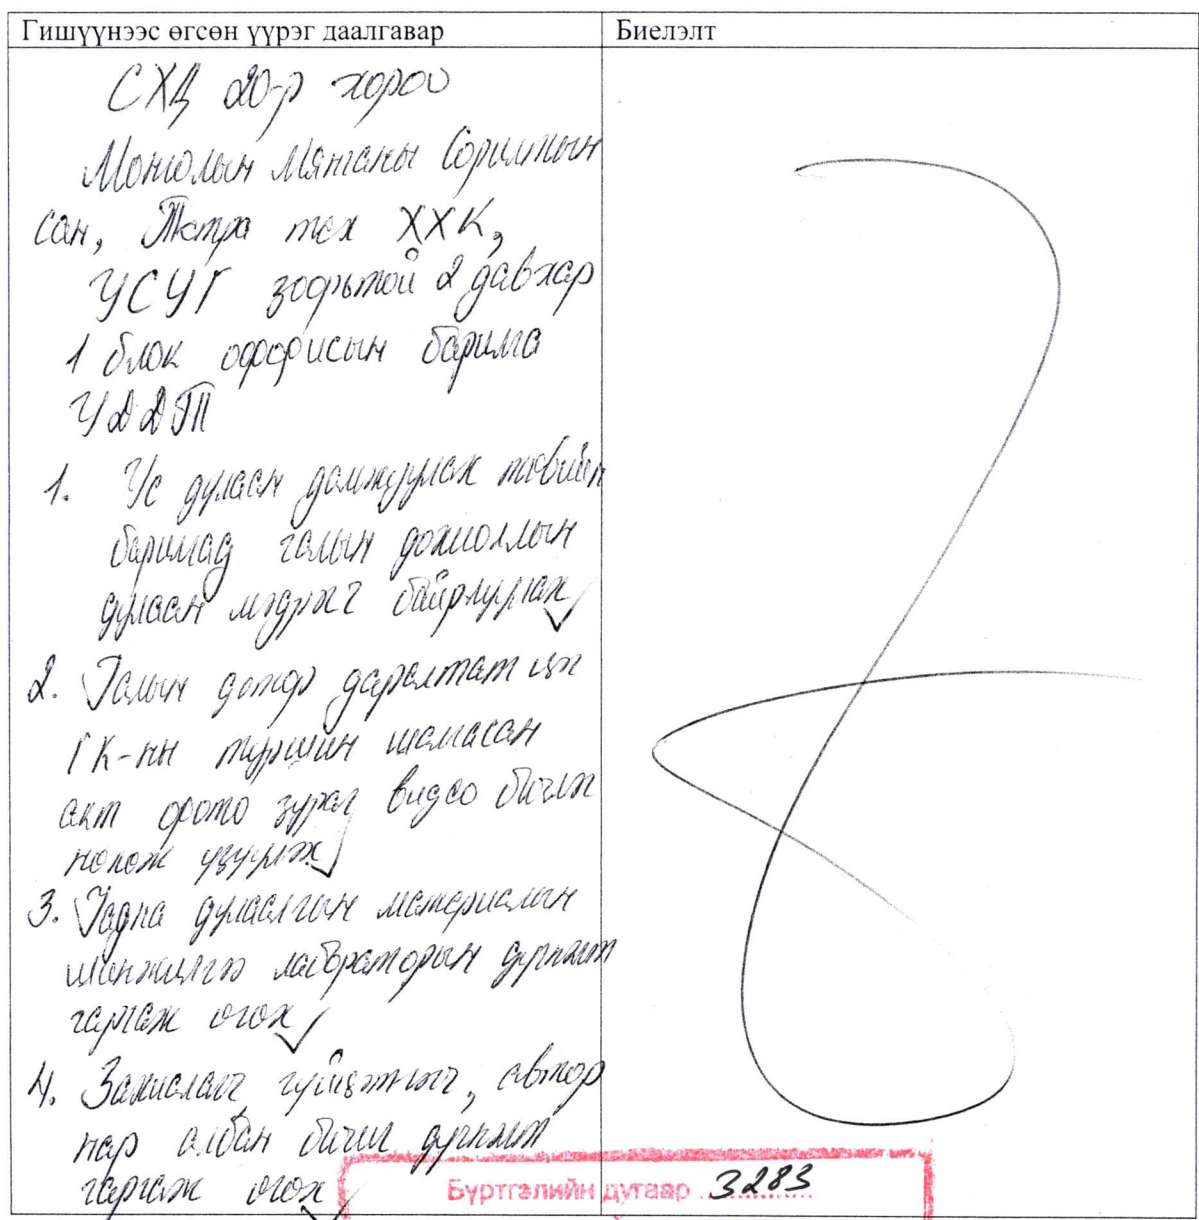 Гишүүнээс өгсөн үүрэг даалгавар
Биелэлт
СХД 20-р хороо
Монголын Мянганы Сорилтын
сан, Тетра тех ХХК,
УСУГ зоорьтой 2 давхар
1 блок оффисын барилга
УДДТ
1. Ус дулаан дамжуулах төвийн
барилгад галын дохиоллын
дулаан мэдрэгч байрлуулах
2. Галын дотор даралтат цэг
ГК-ны туршин шалгасан
акт фото зураг видео бичлэг
нотлож үзүүлэх
3. Гадна дулаалгын материалын
шинжилгээ лабораторын дүгнэлт
гаргаж өгөх
4. Захиалагч гүйцэтгэгч, автор
нар албан бичиг дүгнэлт
гаргаж өгөх
Бүртгэлийн дугаар 3283